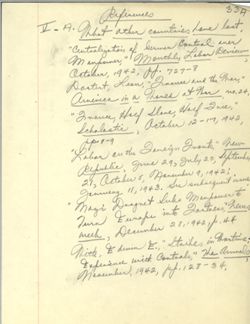 33A
References
V - A. What other countries have lost.
"Centralization of German Control over
Manpower," Monthly Labor Review
October, 1942, pp. 727-8
"France and the War,"
America in a World at War no. 24,
"France, Half Slave, Half Free."
Scholastic, October 12-17, 1942,
pp. 8-9
"Labor on the Foreign Front," New
Republic June 29, July 27, September
21, October 5, November 9, 1942;
January 11, 1943. See subsequent issues
"Nazi Dragnet Seeks Manpower to
Turn Europe into Fortress," News
week, December 28, 1942 p. 44
Witte, Edwin E., "Strikes in Wartime:
Experience with Controls," The Annals,
November, 1942, pp. 128-34.